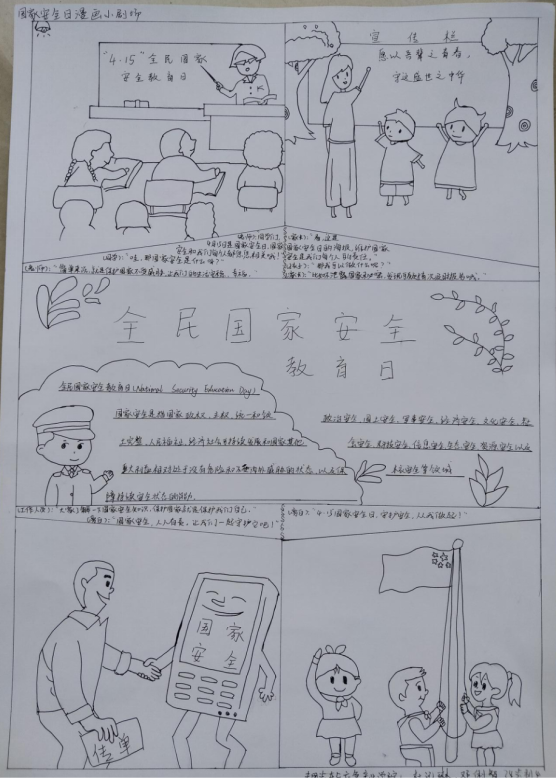 国家安全日漫画小剧场
"4·15"全民国家
安全教育日
宣传栏
愿以吾辈之青春，
守这盛世之中华
老师：同学们，
4月15日是国家安全日，国家
安全和我们每个人都息息相关哦！
同学："哇，那国家安全是什么呀？"
国家安全日的海报，维护国家
安全是我们每个人的责任。"
全民国家安全
教育日
全民国家安全教育日(National Security Education Day)
国家安全是指国家政权、主权、统一和领
土完整、人民福祉、经济社会可持续发展和国家其他
重大利益相对处于没有危险和不受内外威胁的状态，以及保
障持续安全状态的能力。
政治安全、国土安全、军事安全、经济安全、文化安全、社
会安全、科技安全、信息安全、生态安全、资源安全以及
核安全等领域
工作人员："大家了解一下国家安全知识，保护国家就是保护我们自己。"
旁白："国家安全，人人有责，让我们一起守护它吧！"
旁白："4·15国家安全日，守护安全，从我做起！"
国家
安全
传单